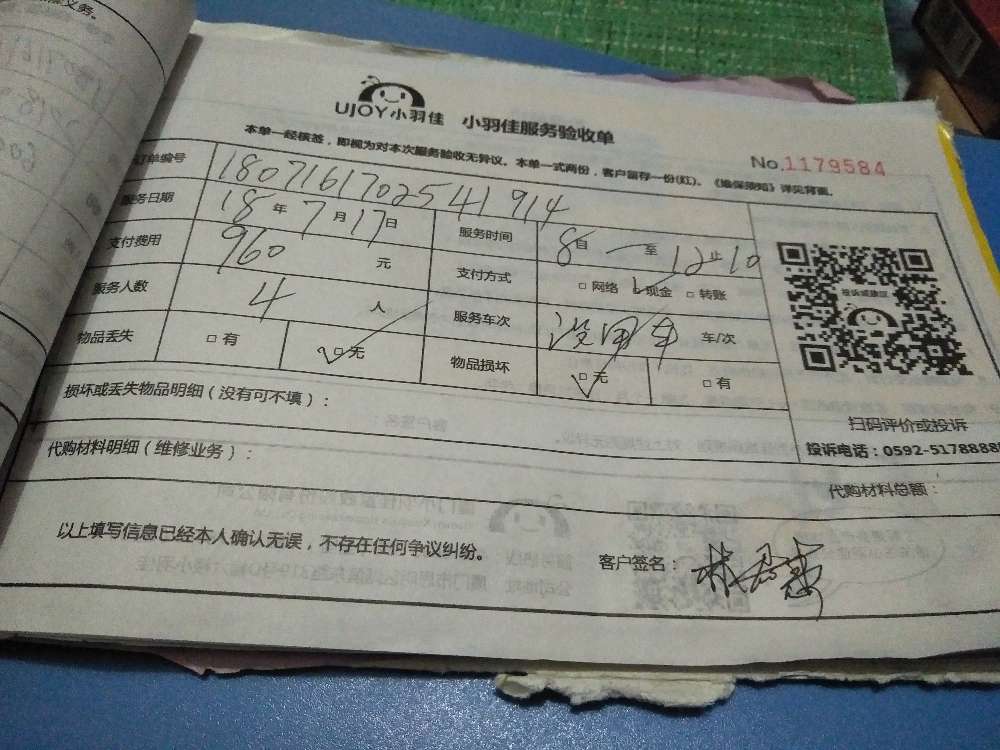 义务。
UJOY小羽佳 小羽佳服务验收单
本单一经核签，即视为对本次服务验收无异议。本单一式两份，客户留存一份(红)。《维保须知》详见背面。
No.1179584
订单编号 180716170254 1914
服务日期 18年7月17日 服务时间 8自一至12止10
支付费用 960元 支付方式 □网络 ☑现金 □转账
服务人数 4人 服务车次 没用车 车/次
物品丢失 □有 ☑无 物品损坏 ☑无 □有
投诉或建议
损坏或丢失物品明细（没有可不填）：
扫码评价或投诉
投诉电话：0592-5178888
代购材料明细（维修业务）：
代购材料总额：
以上填写信息已经本人确认无误，不存在任何争议纠纷。
客户签名：